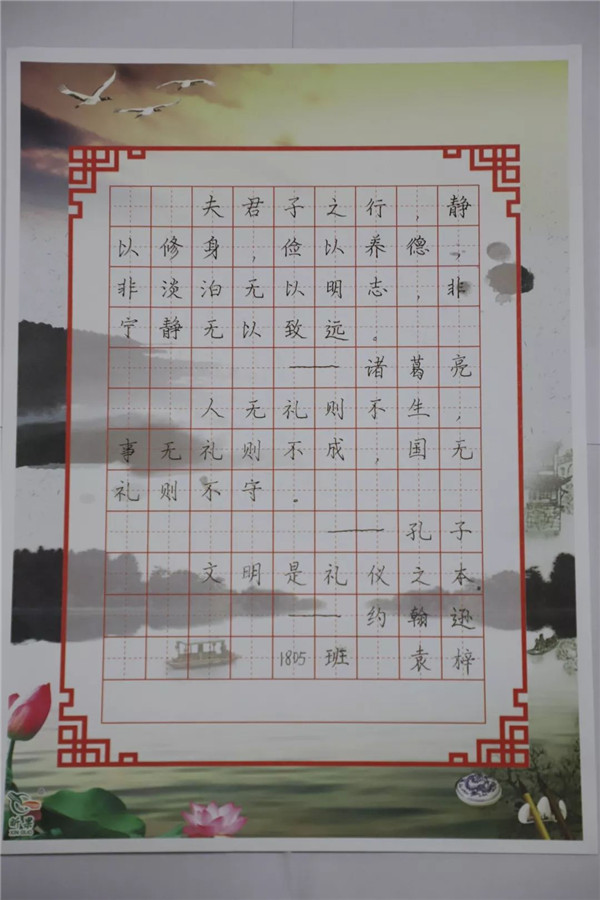 夫君子之行，静
以修身，俭以养德，
非淡泊无以明志，非
宁静无以致远。
——诸葛亮
人无礼则不生，
事无礼则不成，国无
礼则不守。
——孔子
文明是礼仪之本
——约翰逊
1805班 袁梓